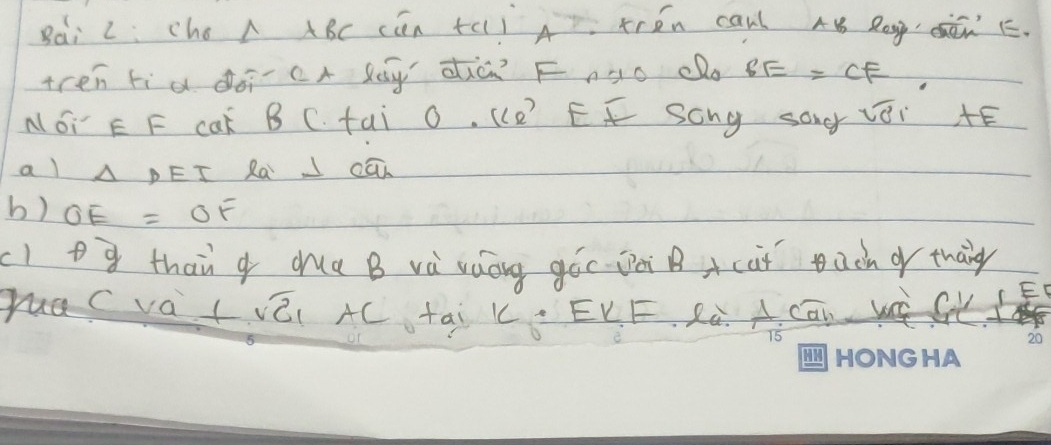 Bài 2 : Cho Δ ABC cân tại A . trên cạnh AB lấy điểm E.
trên tia đối CA lấy điểm F sao cho BE = CF
Nối EF cắt BC tại O . Kẻ EI song song với AF
a) Δ BEI là Δ cân
b) OE = OF
c) Đg thẳng qua B và vuông góc với BA cắt đg thẳng
qua C và ⊥ với AC tại K . EKF là Δ cân và OK ⊥ EF
5 10 15 20
HH HONG HA